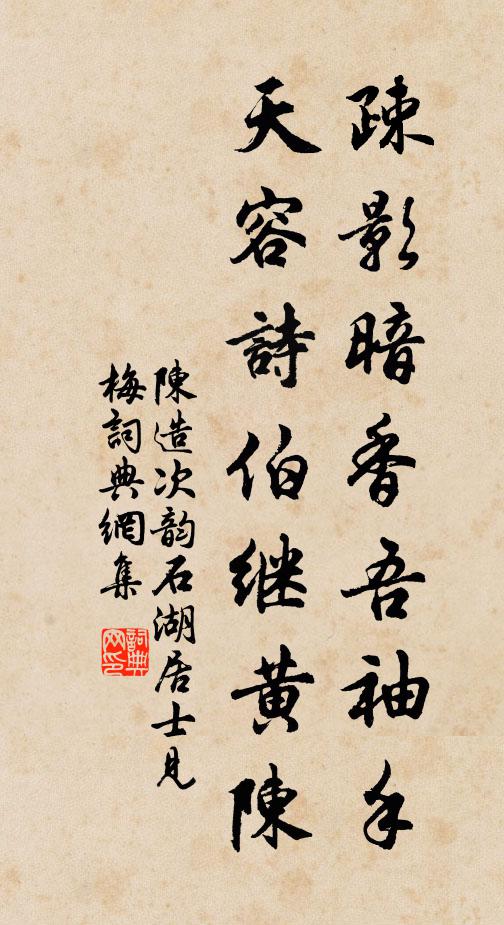 疎影暗香吾袖手
天容詩伯继黄陳
陳造次韵石湖居士見
梅詞典網集
詞典网印